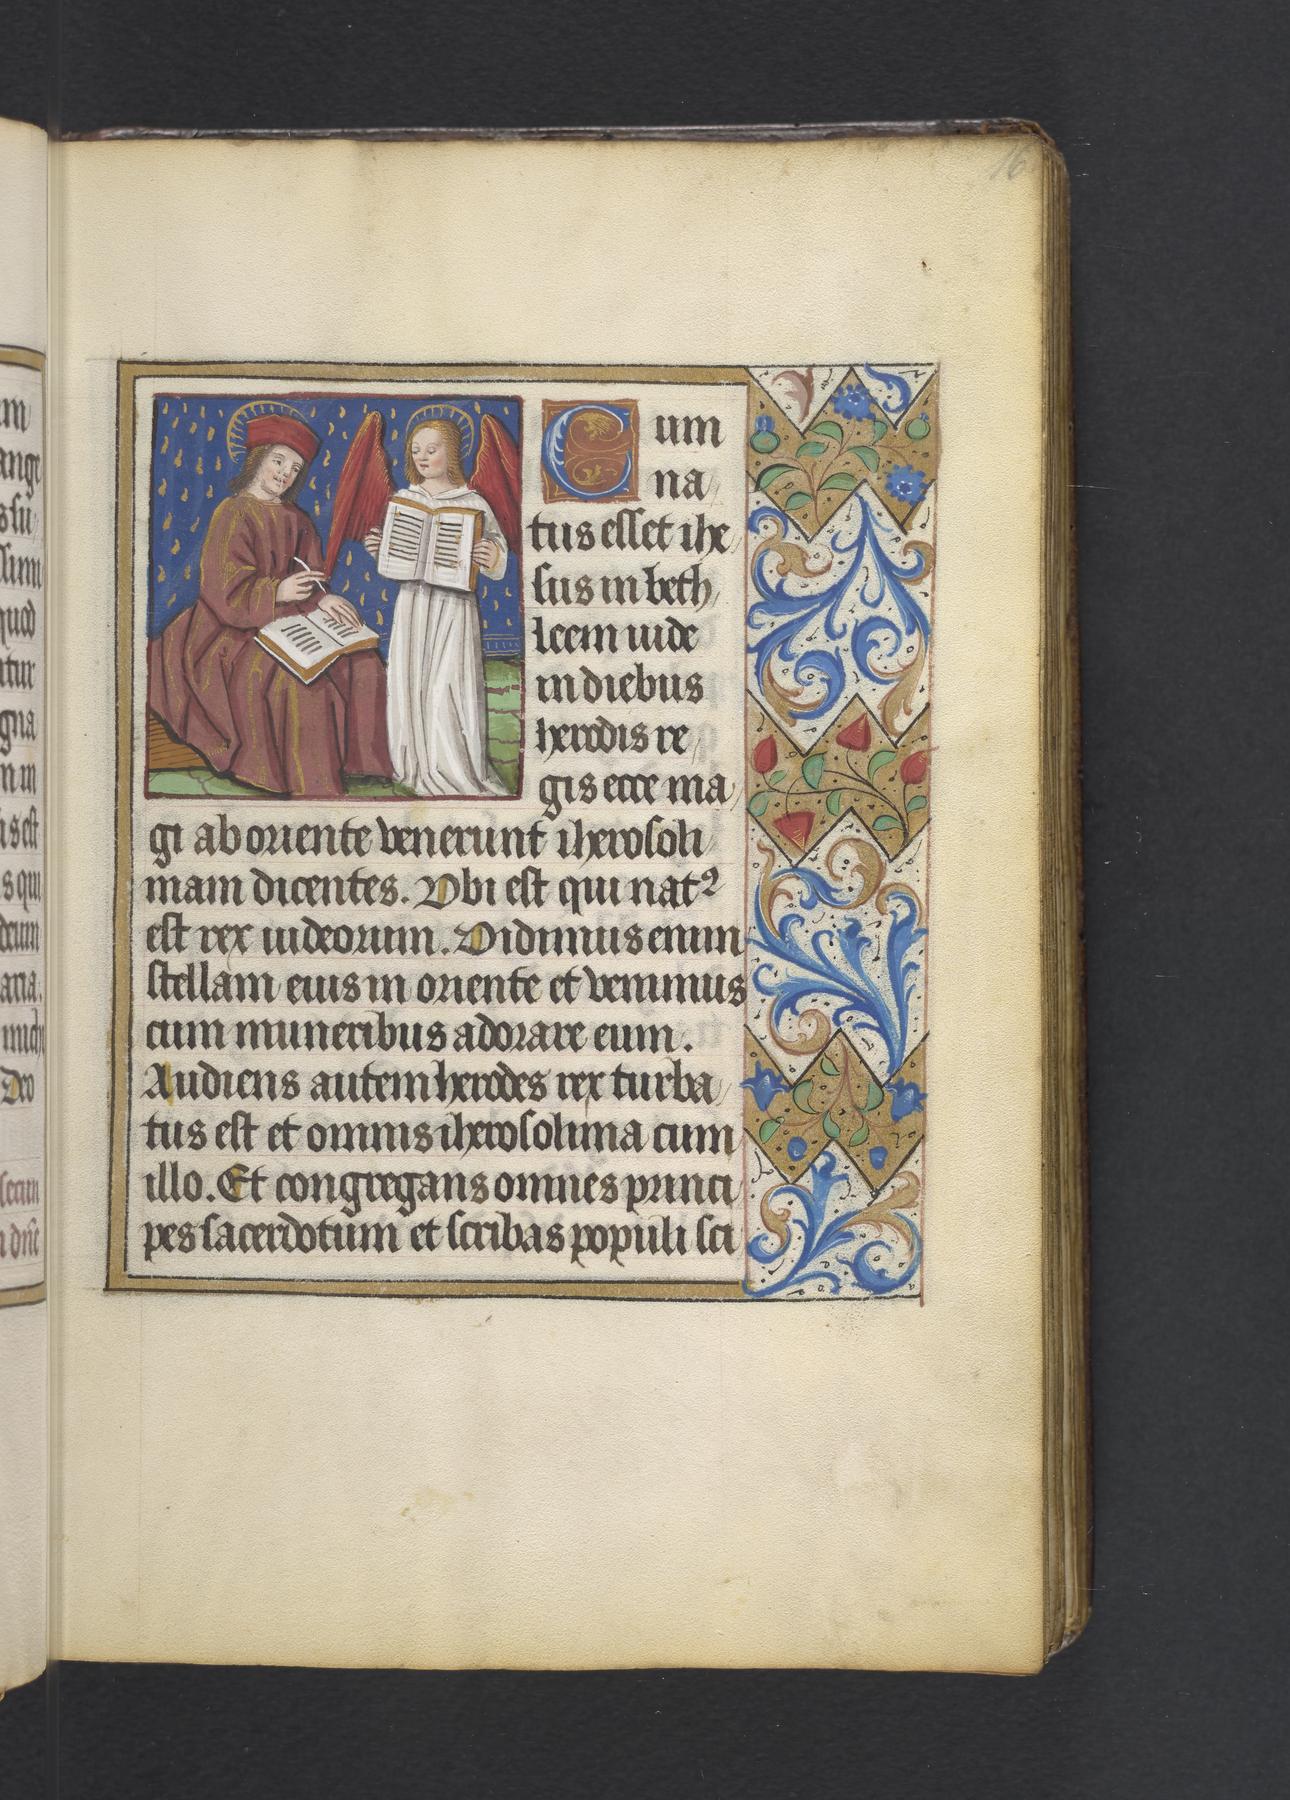 16
Cum
na
tus esset ihe
sus in beth
leem iude
in diebus
herodis re
gis ecce ma
gi ab oriente venerunt iherosoli
mam dicentes. Vbi est qui natꝰ
est rex iudeorum. Vidimus enim
stellam eius in oriente et venimus
cum muneribus adorare eum.
Audiens autem herodes rex turba
tus est et omnis iherosolima cum
illo. Et congregans omnes princi
pes sacerdotum et scribas populi sci